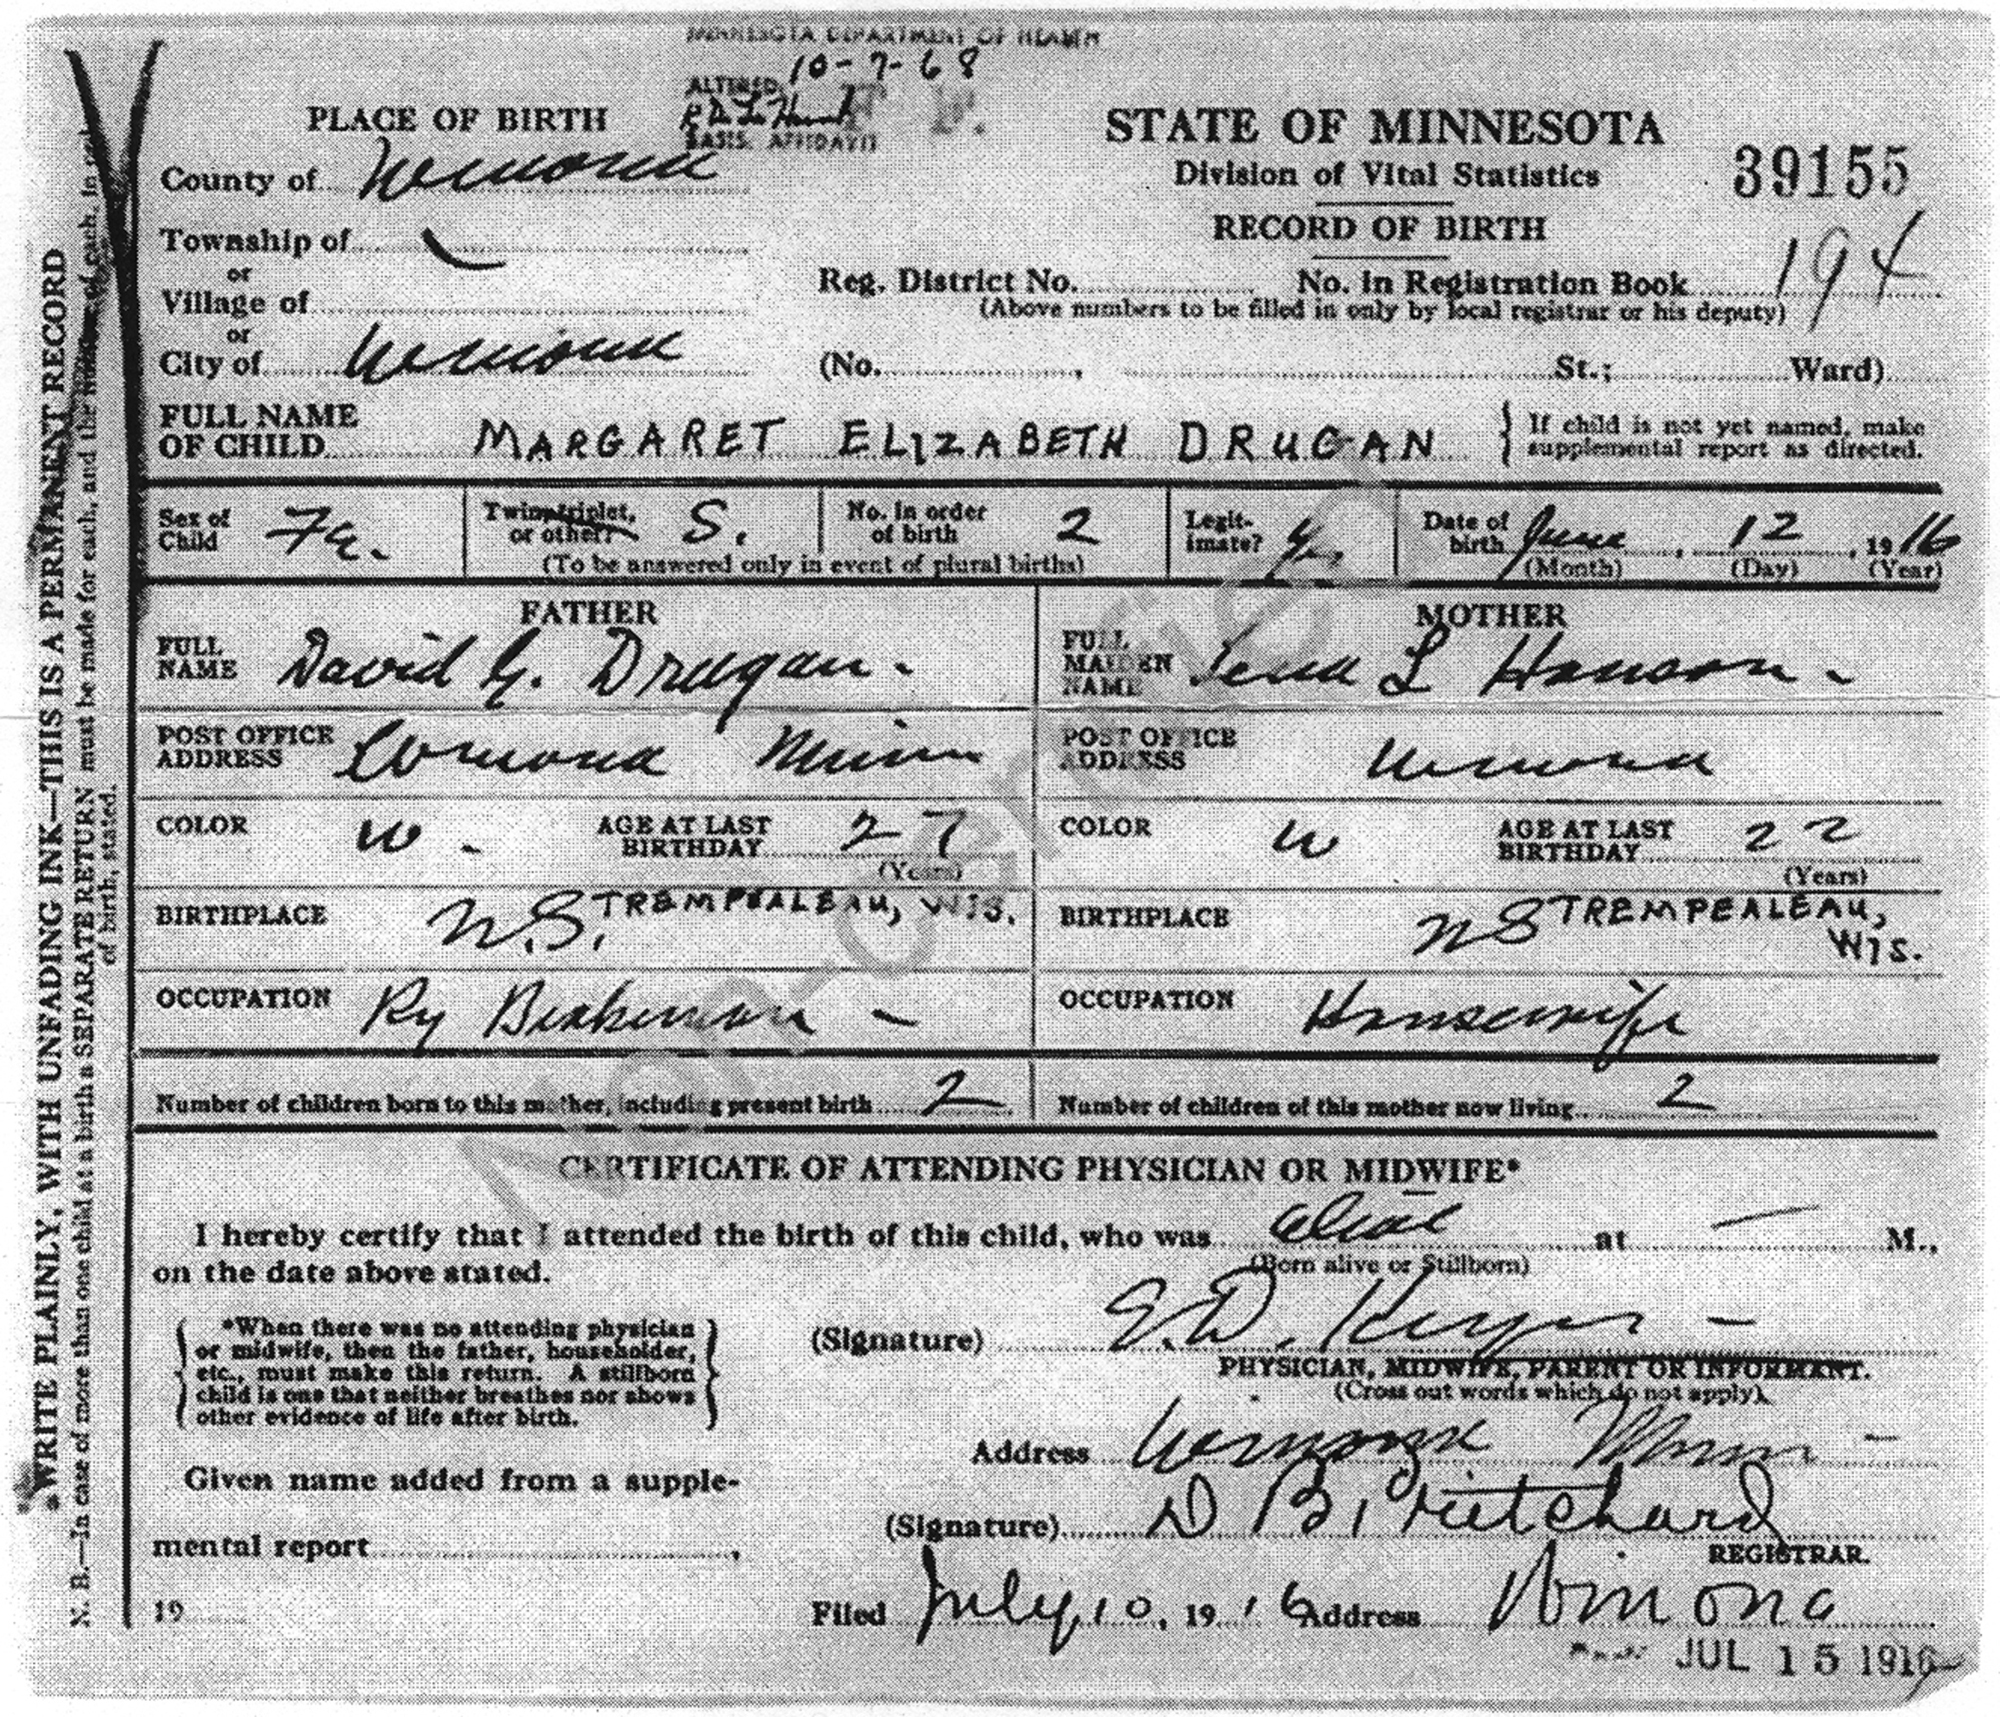 MINNESOTA DEPARTMENT OF HEALTH
ALTERED 10-7-68
BASIS. AFFIDAVIT
PLACE OF BIRTH
STATE OF MINNESOTA
Division of Vital Statistics
39155
County of Winona
RECORD OF BIRTH
Township of
or
Reg. District No. No. in Registration Book 194
Village of
(Above numbers to be filled in only by local registrar or his deputy)
or
City of Winona (No. , St.; Ward)
FULL NAME
OF CHILD MARGARET ELIZABETH DRUGAN
If child is not yet named, make
supplemental report as directed.
Sex of
Child
Twin, triplet,
or other? S.
(To be answered only in event of plural births)
No. in order
of birth 2
Legit-
imate?
Date of
birth June, 12, 1916
(Month) (Day) (Year)
FATHER
FULL
NAME David G. Drugan.
POST OFFICE
ADDRESS Winona Minn
COLOR W. AGE AT LAST
BIRTHDAY 27
(Years)
BIRTHPLACE W.S. TREMPEALEAU, WIS.
OCCUPATION Ry Brakeman -
MOTHER
FULL
MAIDEN
NAME Lena L Hanson.
POST OFFICE
ADDRESS Winona
COLOR W AGE AT LAST
BIRTHDAY 22
(Years)
BIRTHPLACE WS TREMPEALEAU,
WIS.
OCCUPATION Housewife
Number of children born to this mother, including present birth 2
Number of children of this mother now living 2
CERTIFICATE OF ATTENDING PHYSICIAN OR MIDWIFE*
I hereby certify that I attended the birth of this child, who was alive at — M.,
(Born alive or Stillborn)
on the date above stated.
*When there was no attending physician
or midwife, then the father, householder,
etc., must make this return. A stillborn
child is one that neither breathes nor shows
other evidence of life after birth.
(Signature) E.D. Keyes -
PHYSICIAN, MIDWIFE, PARENT OR INFORMANT.
(Cross out words which do not apply).
Address Winona Minn -
Given name added from a supple-
mental report ,
19
(Signature) D B Pritchard
REGISTRAR.
Filed July 10, 1916 Address Winona
JUL 15 1916
WRITE PLAINLY, WITH UNFADING INK—THIS IS A PERMANENT RECORD
N. B.—In case of more than one child at a birth a SEPARATE RETURN must be made for each, and the number of each, in
of birth, stated.